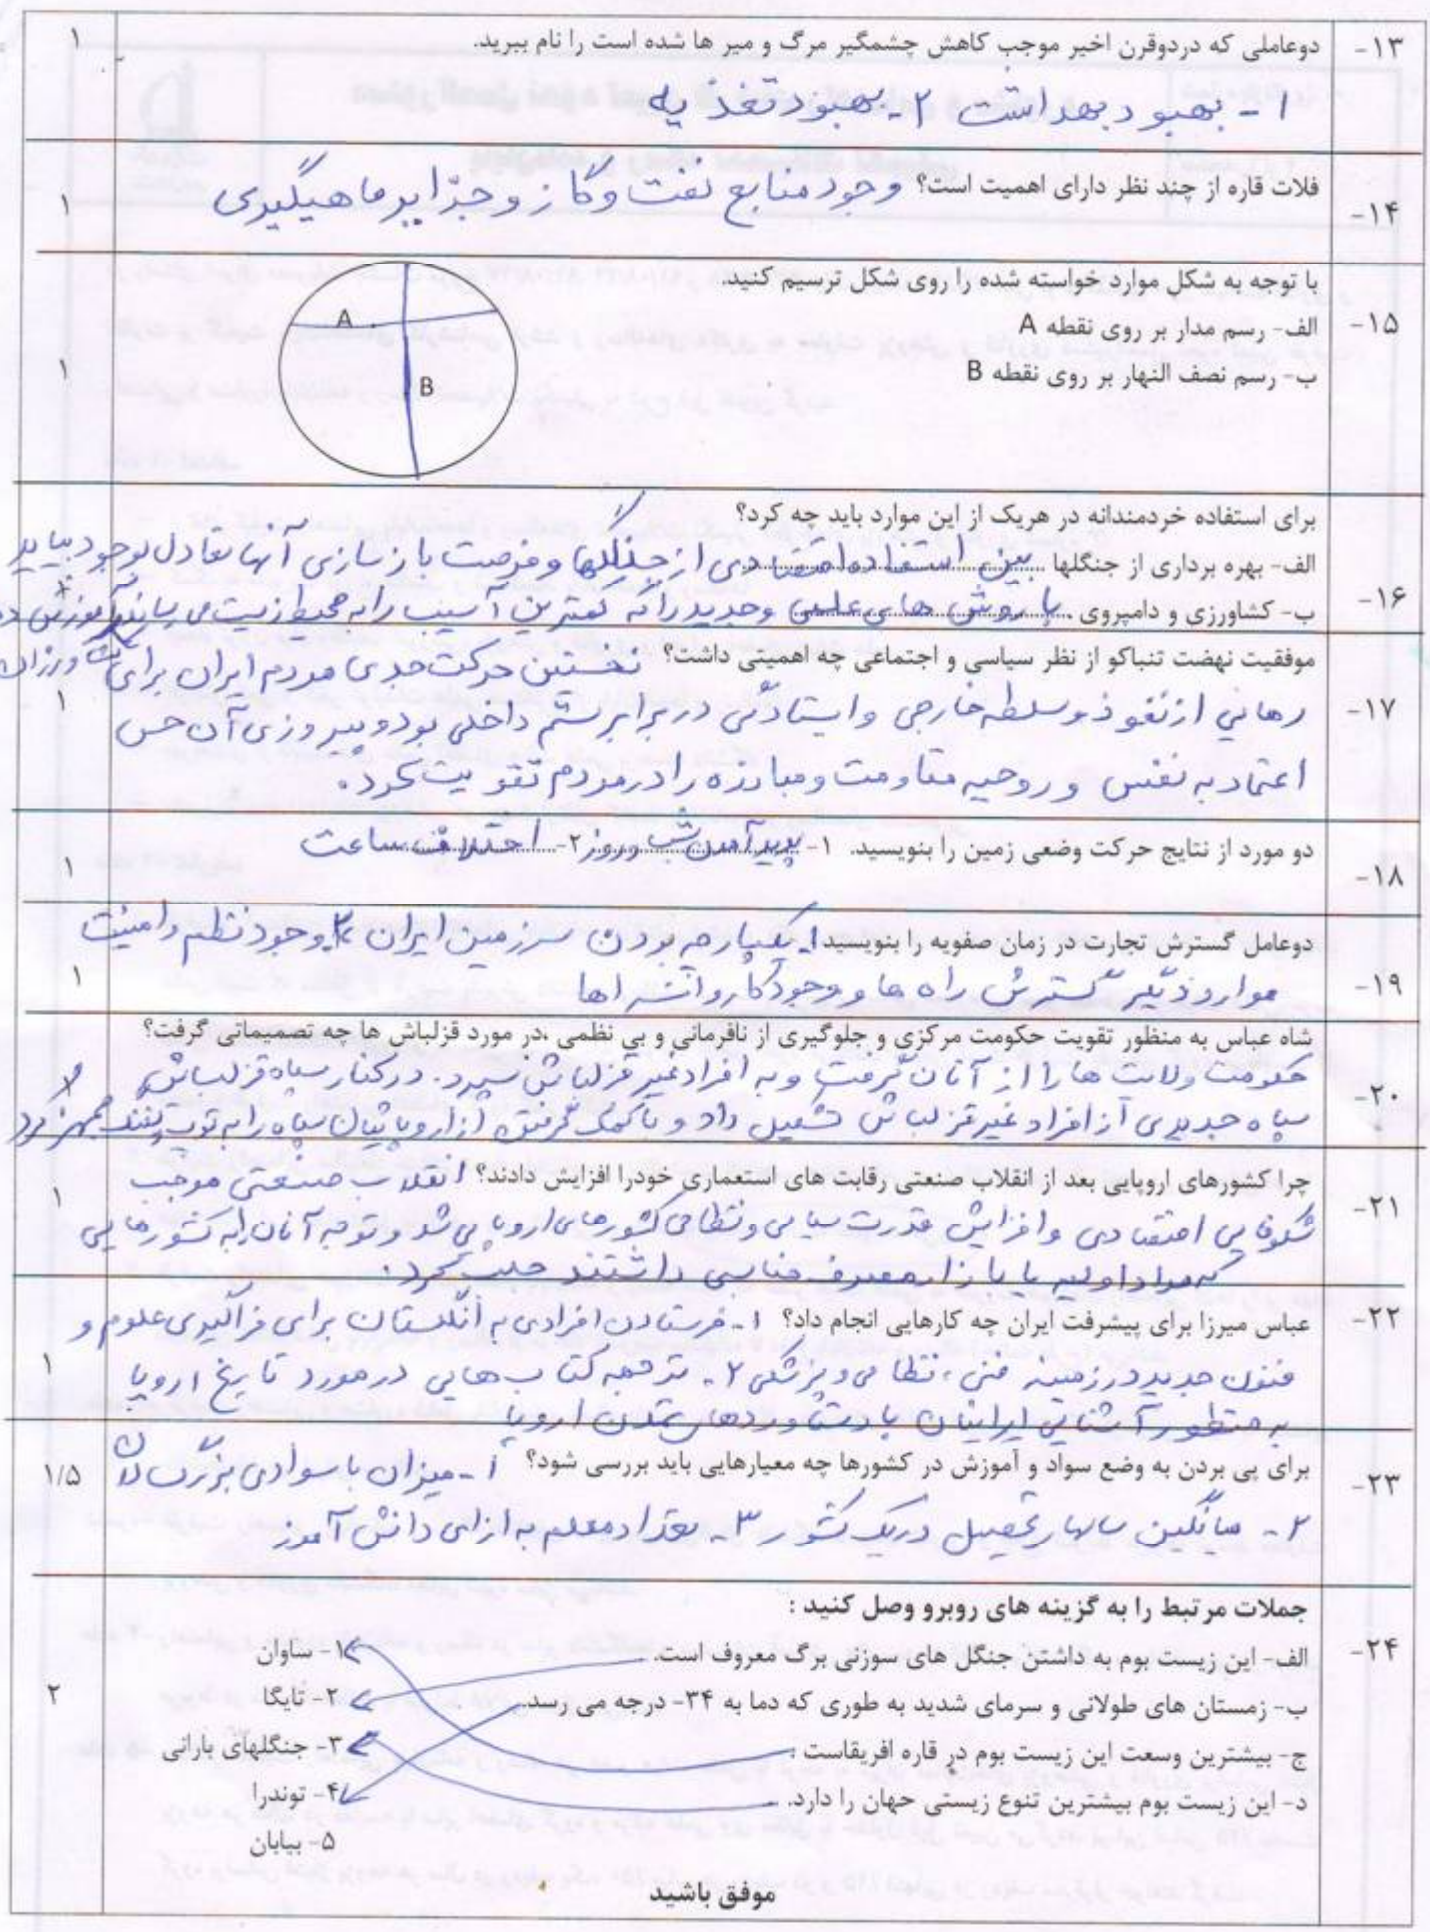 ۱۳- دوعاملی که دردوقرن اخیر موجب کاهش چشمگیر مرگ و میر ها شده است را نام ببرید. ۱
۱- بهبود بهداشت ۲- بهبود تغذیه
۱۴- فلات قاره از چند نظر دارای اهمیت است؟ وجود منابع نفت و گاز و جزایر ماهیگیری ۱
با توجه به شکل موارد خواسته شده را روی شکل ترسیم کنید.
۱۵- الف- رسم مدار بر روی نقطه A
ب- رسم نصف النهار بر روی نقطه B ۱
A
B
برای استفاده خردمندانه در هریک از این موارد باید چه کرد؟
الف- بهره برداری از جنگلها بین استفاده اقتصادی از جنگلها و فرصت بازسازی آنها تعادل بوجود بیاید
۱۶- ب- کشاورزی و دامپروری با روش های علمی و جدید را که کمترین آسیب را به محیط زیست می رساند آموزش
کشاورزان
موفقیت نهضت تنباکو از نظر سیاسی و اجتماعی چه اهمینی داشت؟ نخستین حرکت جدی مردم ایران برای
۱۷- رهایی از نفوذ و سلطه خارجی و ایستادگی در برابر ستم داخلی بود و پیروزی آن حس ۱
اعتماد به نفس و روحیه مقاومت و مبارزه را در مردم تقویت کرد.
۱۸- دو مورد از نتایج حرکت وضعی زمین را بنویسید. ۱- پدید آمدن شب و روز ۲- اختلاف ساعت ۱
دوعامل گسترش تجارت در زمان صفویه را بنویسید ۱- یکپارچه بودن سرزمین ایران ۲- وجود نظم و امنیت
۱۹- موارد دیگر گسترش راه ها و وجود کاروانسراها ۱
شاه عباس به منظور تقویت حکومت مرکزی و جلوگیری از نافرمانی و بی نظمی ،در مورد قزلباش ها چه تصمیماتی گرفت؟
۲۰- حکومت ولایت ها را از آنان گرفت و به افراد غیر قزلباش سپرد. در کنار سپاه قزلباش
سپاه جدیدی از افراد غیر قزلباش تشکیل داد و با کمک گرفتن از اروپائیان سپاه را به توپ و تفنگ مجهز کرد
چرا کشورهای اروپایی بعد از انقلاب صنعتی رقابت های استعماری خودرا افزایش دادند؟ انقلاب صنعتی موجب
۲۱- شکوفایی اقتصادی و افزایش قدرت سیاسی و نظامی کشورهای اروپایی شد و توجه آنان را به کشورهایی ۱
که مواد اولیه یا بازار مصرف مناسبی داشتند جلب کرد.
۲۲- عباس میرزا برای پیشرفت ایران چه کارهایی انجام داد؟ ۱- فرستادن افرادی به انگلستان برای فراگیری علوم و
فنون جدید در زمینه فنی ، نظامی و پزشکی ۲- ترجمه کتاب هایی در مورد تاریخ اروپا ۱
به منظور آشنایی ایرانیان با دستاوردهای تمدن اروپا
۲۳- برای پی بردن به وضع سواد و آموزش در کشورها چه معیارهایی باید بررسی شود؟ ۱- میزان باسوادی بزرگسالان ۱/۵
۲- میانگین سالهای تحصیل در یک کشور ۳- تعداد معلم به ازای دانش آموز
جملات مرتبط را به گزینه های روبرو وصل کنید :
۲۴- الف- این زیست بوم به داشتن جنگل های سوزنی برگ معروف است. ۱- ساوان
ب- زمستان های طولانی و سرمای شدید به طوری که دما به ۳۴- درجه می رسد. ۲- تایگا ۲
ج- بیشترین وسعت این زیست بوم در قاره افریقاست . ۳- جنگلهای بارانی
د- این زیست بوم بیشترین تنوع زیستی جهان را دارد. ۴- توندرا
۵- بیابان
موفق باشید